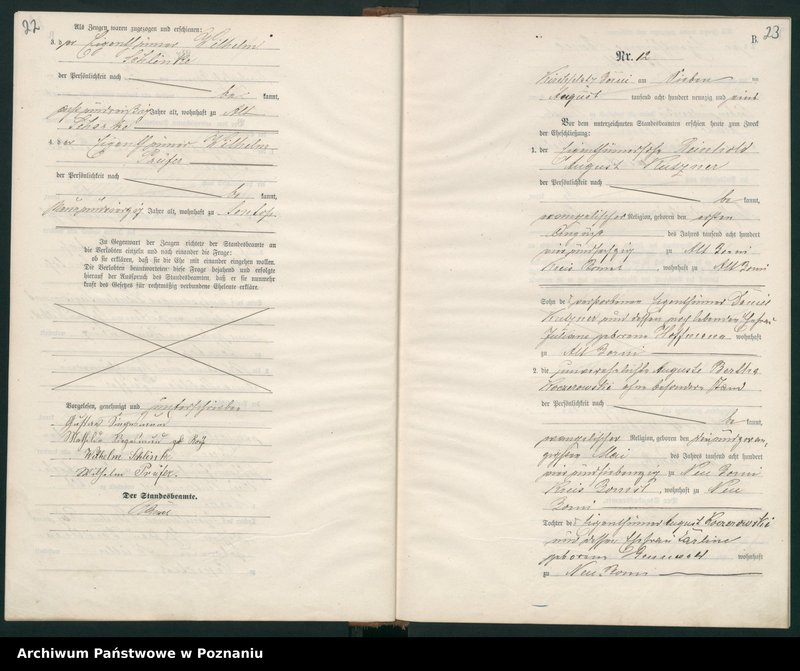 22
Als Zeugen waren zugezogen und erschienen:
3. der Eigenthümer Wilhelm
Schlinke
der Persönlichkeit nach
be kannt,
Jahre alt, wohnhaft zu Alt
Scharke
4. der Eigenthümer Wilhelm
Prüfer
der Persönlichkeit nach
be kannt,
neunundvierzig Jahre alt, wohnhaft zu Sontop.
In Gegenwart der Zeugen richtete der Standesbeamte an
die Verlobten einzeln und nach einander die Frage:
ob sie erklären, daß sie die Ehe mit einander eingehen wollen.
Die Verlobten beantworteten diese Frage bejahend und erfolgte
hierauf der Ausspruch des Standesbeamten, daß er sie nunmehr
kraft des Gesetzes für rechtmäßig verbundene Eheleute erkläre.
Vorgelesen, genehmigt und unterschrieben
Gustav Siegesmund
Mathilde Siegesmund geb.
Wilhelm Schlinke
Wilhelm Prüfer.
Der Standesbeamte.
23
B.
Nr. 12
Kirchplatz Borui am sieben ten
August tausend acht hundert neunzig und eins
Vor dem unterzeichneten Standesbeamten erschien heute zum Zweck
der Eheschließung:
1. der Eigenthümersohn Reinhold
August Kutzner
der Persönlichkeit nach
be kannt,
evangelischer Religion, geboren den ersten
August des Jahres tausend acht hundert
vierundsechzig zu Alt Borui
Kreis Bomst, wohnhaft zu Alt Borui
Sohn des verstorbenen Eigenthümer
Kutzner und dessen noch lebenden Ehefrau
Juliane geborene Hoffmann wohnhaft
zu Alt Borui
2. die unverehelichte Auguste Bertha
Koczorowski ohne besonderen Stand
der Persönlichkeit nach
be kannt,
evangelischer Religion, geboren den neunundzwan-
zigsten Mai des Jahres tausend acht hundert
vierundsiebenzig zu Neu Borui
Kreis Bomst, wohnhaft zu Neu
Borui
Tochter des Eigenthümer August Koczorowski
und dessen Ehefrau Karline
geborene wohnhaft
zu Neu Borui
Archiwum Państwowe w Poznaniu